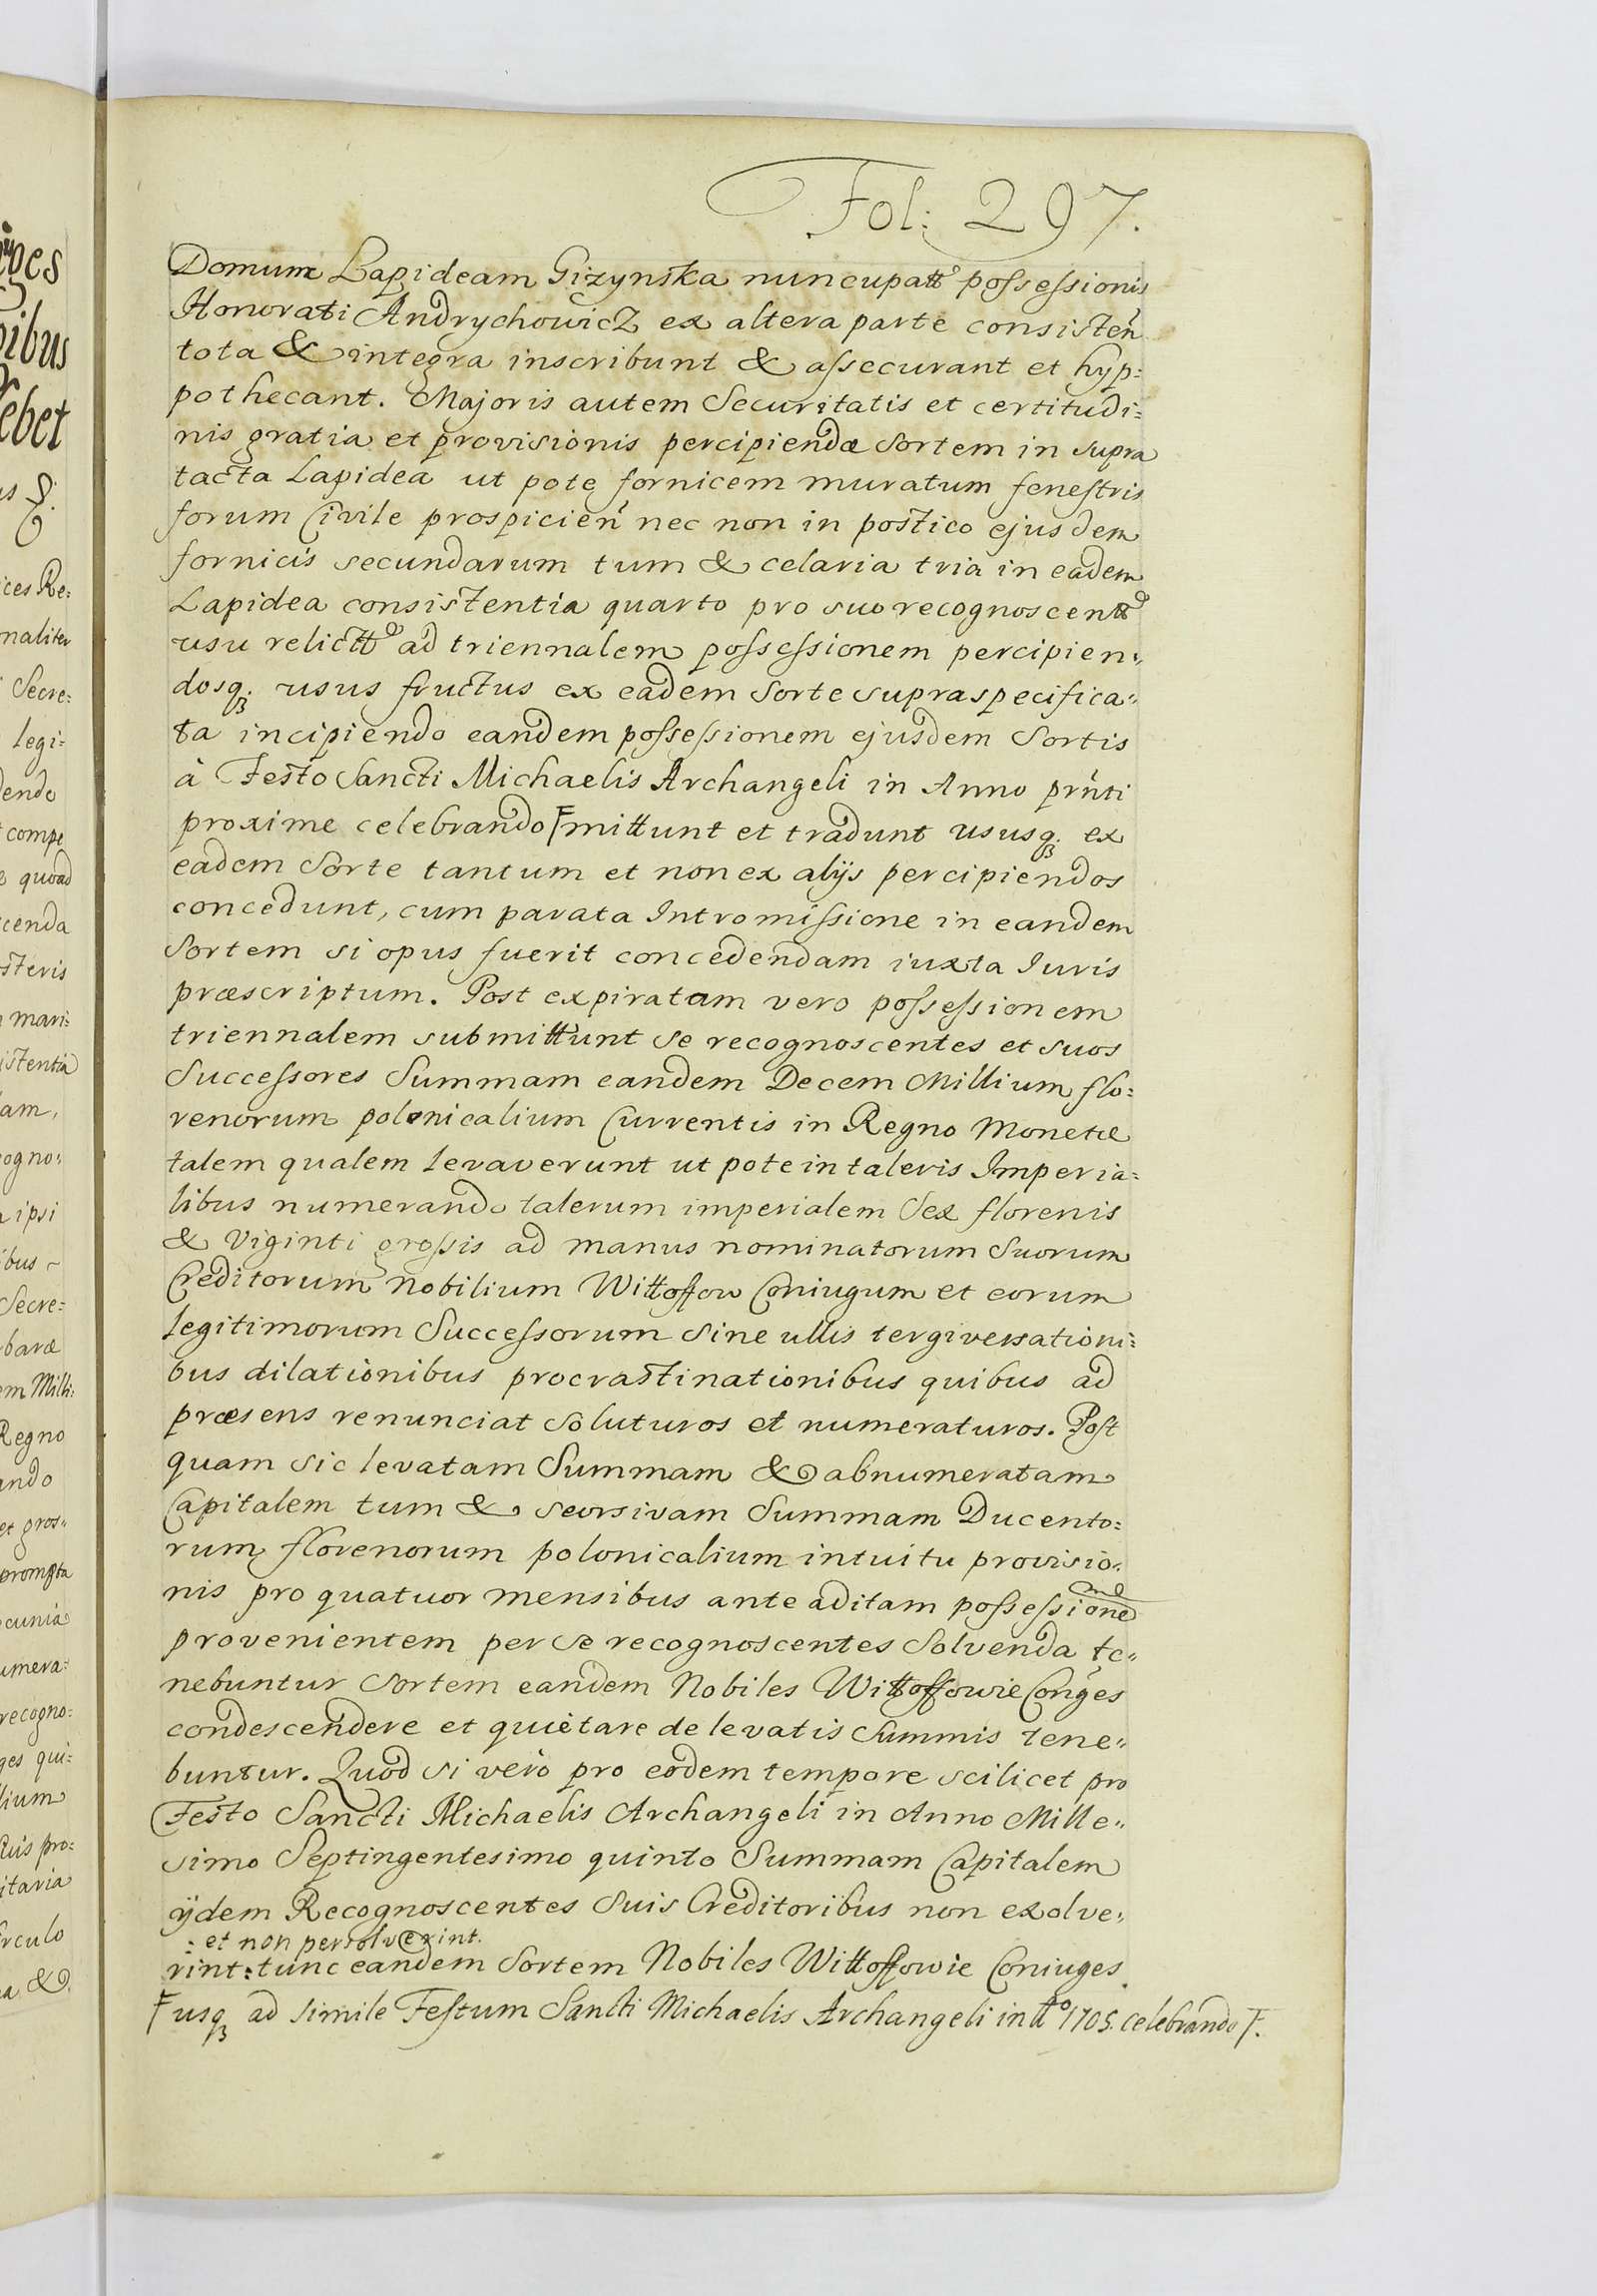 Fol: 297.
Domum Lapideam Gizynska nuncupatt possessionis
Honorati Andrychowicz ex altera parte consisten
tota & integra inscribunt & assecurant et hyp=
pothecant. Majoris autem Securitatis et certitudi=
nis gratia et provisionis percipiendæ Sortem in supra
tacta Lapidea ut pote fornicem muratum fenestris
forum Civile prospicien nec non in postico ejusdem
fornicis secundarum tum & celaria tria in eadem
Lapidea consistentia quarto pro suo recognoscentt
usu relictt ad triennalem possessionem percipien=
dosq; usus fructus ex eadem Sorte supraspecifica=
ta incipiendo eandem possessionem ejusdem Sortis
à Festo Sancti Michaelis Archangeli in Anno prnti
proxime celebrando F mittunt et tradunt ususq; ex
eadem Sorte tantum et non ex alijs percipiendos
concedunt, cum parata Intromissione in eandem
Sortem si opus fuerit concedendam iuxta Iuris
præscriptum. Post expiratam vero possessionem
triennalem submittunt se recognoscentes et suos
Successores Summam eandem Decem Millium flo=
renorum polonicalium Currentis in Regno Monetæ
talem qualem levaverunt ut pote in taleris Imperia=
libus numerando talerum imperialem Sex florenis
& Viginti grossis ad manus nominatorum Suorum
Creditorum Nobilium Wittoffow Coniugum et eorum
legitimorum Successorum Sine ullis tergiversationi=
bus dilationibus procrastinationibus quibus ad
præsens renunciat Soluturos et numeraturos. Post
quam sic levatam Summam & abnumeratam
Capitalem tum & seorsivam Summam Ducento=
rum florenorum polonicalium intuitu provisio=
nis pro quatuor mensibus ante aditam possessione
provenientem per se recognoscentes Solvenda te=
nebuntur Sortem eandem Nobiles Wittoffowie Conges
condescendere et quietare de levatis Summis tene=
buntur. Quod si vero pro eodem tempore scilicet pro
Festo Sancti Michaelis Archangeli in Anno Mille=
simo Septingentesimo quinto Summam Capitalem
ijdem Recognoscentes Suis Creditoribus non exolve=
: et non persolverint.
rint: tunc eandem Sortem Nobiles Wittoffowie Coniuges
F usq; ad simile Festum Sancti Michaelis Archangeli in Ao 1705. celebrando F.